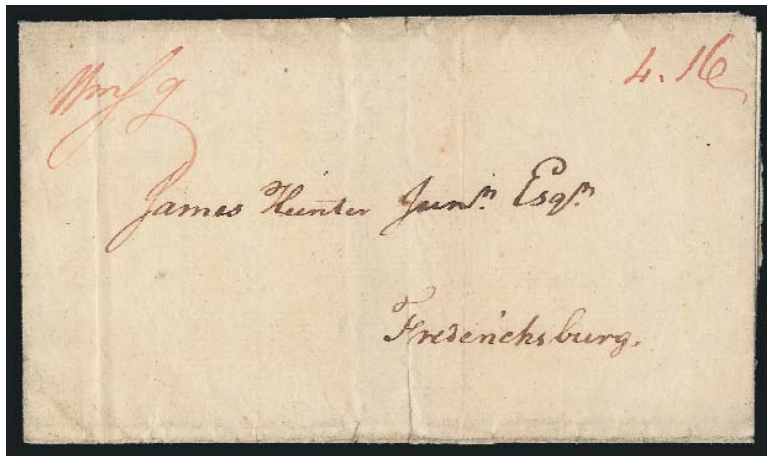 Wmsg 4.16
James Hunter Junr. Esqr.
Fredericksburg.